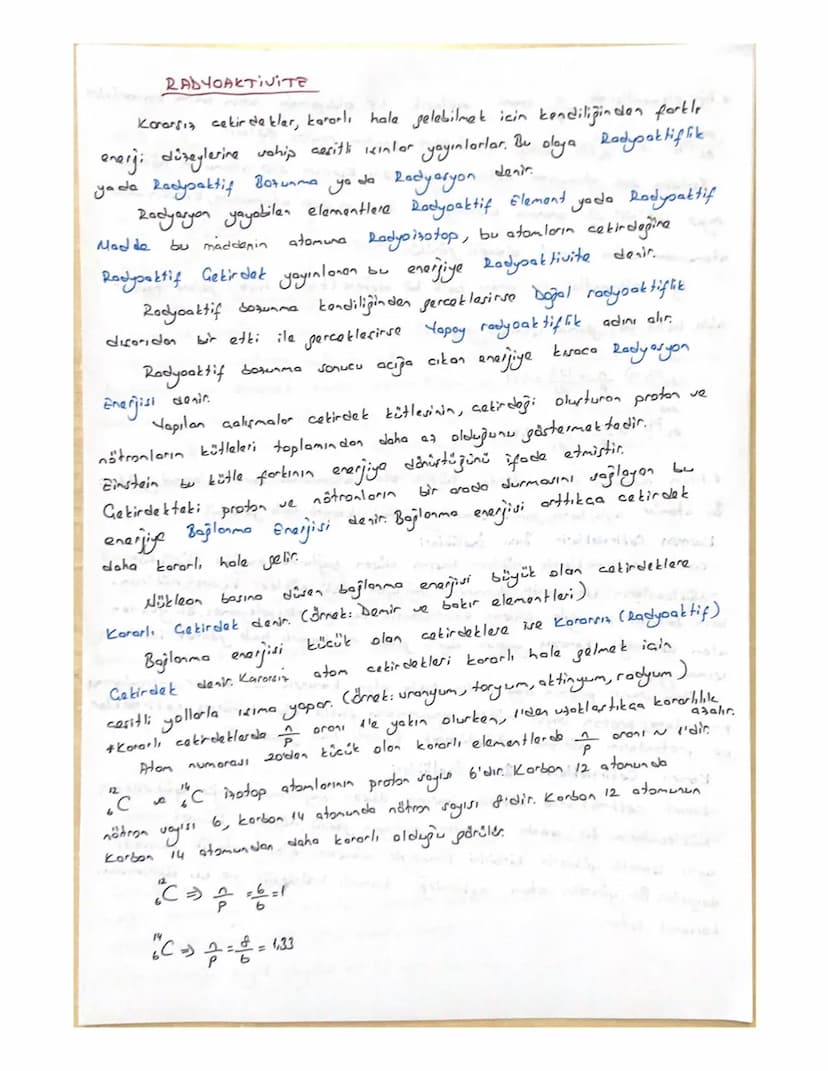 RADYOAKTİVİTE
Kararsız çekirdekler, kararlı hale gelebilmek için kendiliğinden farklı
enerji düzeylerine sahip çeşitli ışınlar yayınlarlar. Bu olaya Radyoaktiflik
yada Radyoaktif Bozunma ya da Radyasyon denir.
Radyasyon yayabilen elementlere Radyoaktif Element yada Radyoaktif
Madde bu maddenin atomuna Radyoizotop, bu atomların çekirdeğine
Radyoaktif Çekirdek yayınlanan bu enerjiye Radyoaktivite denir.
Radyoaktif bozunma kendiliğinden gerçekleşirse Doğal radyoaktiflik
dışarıdan bir etki ile gerçekleşirse Yapay radyoaktiflik adını alır.
Radyoaktif bozunma sonucu açığa çıkan enerjiye kısaca Radyasyon
Enerjisi denir.
Yapılan çalışmalar çekirdek kütlesinin, çekirdeği oluşturan proton ve
nötronların kütleleri toplamından daha az olduğunu göstermektedir.
Einstein bu kütle farkının enerjiye dönüştüğünü ifade etmiştir.
Çekirdekteki proton ve nötronların bir arada durmasını sağlayan bu
enerjiye Bağlanma Enerjisi denir. Bağlanma enerjisi arttıkça çekirdek
daha kararlı hale gelir.
Nükleon başına düşen bağlanma enerjisi büyük olan çekirdeklere
Kararlı Çekirdek denir. (Örnek: Demir ve bakır elementleri)
Bağlanma enerjisi küçük olan çekirdeklere ise Kararsız (Radyoaktif)
Çekirdek denir. Kararsız atom çekirdekleri kararlı hale gelmek için
çeşitli yollarla ışıma yapar. (Örnek: uranyum, toryum, aktinyum, radyum)
*Kararlı çekirdeklerde n/p oranı 1'e yakın olurken, 1'den uzaklaştıkça kararlılık azalır.
Atom numarası 20'den küçük olan kararlı elementlerde n/p oranı ~ 1'dir.
¹²₆C ve ¹⁴₆C izotop atomlarının proton sayısı 6'dır. Karbon 12 atomunda
nötron sayısı 6, karbon 14 atomunda nötron sayısı 8'dir. Karbon 12 atomunun
Karbon 14 atomundan daha kararlı olduğu görülür.
¹²₆C ⇒ n/p = 6/6 = 1
¹⁴₆C ⇒ n/p = 8/6 = 1,33